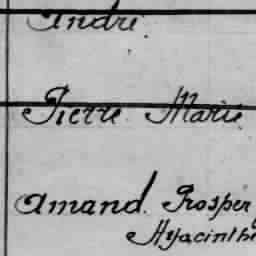 André.
Pierre Marie
Amand Prosper
Hyacinthe